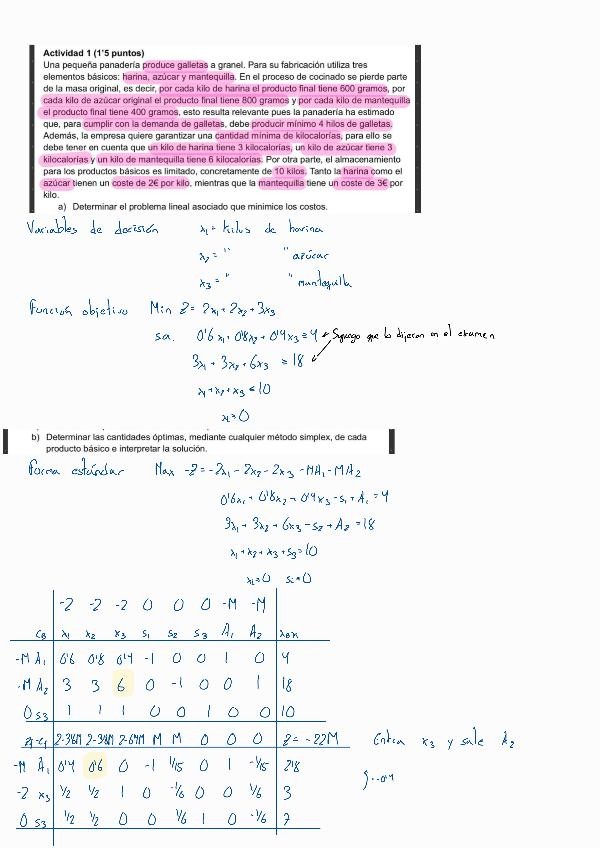 Actividad 1 (1'5 puntos)
Una pequeña panadería produce galletas a granel. Para su fabricación utiliza tres
elementos básicos: harina, azúcar y mantequilla. En el proceso de cocinado se pierde parte
de la masa original, es decir, por cada kilo de harina el producto final tiene 600 gramos, por
cada kilo de azúcar original el producto final tiene 800 gramos y por cada kilo de mantequilla
el producto final tiene 400 gramos, esto resulta relevante pues la panadería ha estimado
que, para cumplir con la demanda de galletas, debe producir mínimo 4 kilos de galletas.
Además, la empresa quiere garantizar una cantidad mínima de kilocalorías, para ello se
debe tener en cuenta que un kilo de harina tiene 3 kilocalorías, un kilo de azúcar tiene 3
kilocalorías y un kilo de mantequilla tiene 6 kilocalorías. Por otra parte, el almacenamiento
para los productos básicos es limitado, concretamente de 10 kilos. Tanto la harina como el
azúcar tienen un coste de 2€ por kilo, mientras que la mantequilla tiene un coste de 3€ por
kilo.
a) Determinar el problema lineal asociado que minimice los costos.
Variables de decisión x₁ = kilos de harina
x₂ = " " azúcar
x₃ = " " mantequilla
Función objetivo Min Z = 2x₁ + 2x₂ + 3x₃
s.a. 0'6x₁ + 0'8x₂ + 0'4x₃ ≥ 4 Supongo que lo dijeron en el examen
3x₁ + 3x₂ + 6x₃ ≥ 18
x₁ + x₂ + x₃ ≤ 10
xᵢ ≥ 0
b) Determinar las cantidades óptimas, mediante cualquier método simplex, de cada
producto básico e interpretar la solución.
Forma estándar Max -Z = -2x₁ - 2x₂ - 2x₃ - MA₁ - MA₂
0'6x₁ + 0'8x₂ + 0'4x₃ - s₁ + A₁ = 4
3x₁ + 3x₂ + 6x₃ - s₂ + A₂ = 18
x₁ + x₂ + x₃ + s₃ = 10
xᵢ ≥ 0 sᵢ ≥ 0
-2 -2 -2 0 0 0 -M -M
CB x₁ x₂ x₃ s₁ s₂ s₃ A₁ A₂ xBx
-M A₁ 0'6 0'8 0'4 -1 0 0 1 0 4
-M A₂ 3 3 6 0 -1 0 0 1 18
0 s₃ 1 1 1 0 0 1 0 0 10
zj-cj 2-3'6M 2-3'8M 2-6'4M M M 0 0 0 Z = -22M Entra x₃ y sale A₂
-M A₁ 0'4 0'6 0 -1 1/15 0 1 -1/15 2'8
-2 x₃ 1/2 1/2 1 0 -1/6 0 0 1/6 3
0 s₃ 1/2 1/2 0 0 1/6 1 0 -1/6 7